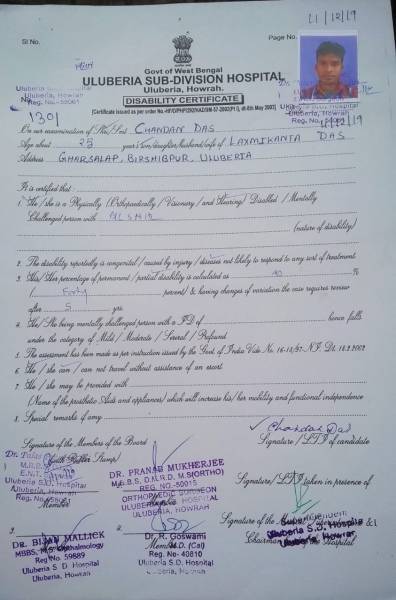 11/12/19
Sl No.
Page No.
Govt of West Bengal
ULUBERIA SUB-DIVISION HOSPITAL
Uluberia, Howrah.
Uluberia, Howrah
Reg. No.-59001
DISABILITY CERTIFICATE
1301
11/12/19
On our examination of Shri/Smt CHANDAN DAS
Age about 28 years Son/daughter/husband/wife of LAXMIKANTA DAS
Address GHARSALAP, BIRSHIBPUR, ULUBERIA
It is certified that :
1. He / she is a Physically (Orthopaedically / Visionery / and Hearing) Disabled / Mentally
Challenged person with
(nature of disability)
2. The disability reportedly is congenital / caused by injury / diseases not likely to respond to any sort of treatment.
3. His/Her percentage of permanent / partial disability is calculated as 40 %
( Forty percent) & having changes of variation the case requires review
after 5 yrs.
4. He/She being mentally challenged person with a I.D of hence falls
under the category of Mild / Moderate / Several / Profound
5. The assessment has been made as per instruction issued by the Govt. of India Vide No. 16-18/97-N.I. Dt. 18.2.2002
6. He / she can / can not travel without assistance of an escort
7. He / she may be provided with
(Name of the prosthetic Aids and appliances) which will increase his/her mobility and functional independence
8. Special remarks if any
Chandan Das
Signature of the Members of the Board
Signature / LTI of candidate
(with Rubber Stamp)
E.N.T.
Uluberia S.D. Hospital
Uluberia, Howrah
Member
DR. PRANAB MUKHERJEE
M.B.B.S, D.M.R.D, M S(ORTHO)
REG. NO.-50015
ORTHOPAEDIC SURGEON
ULUBERIA, HOWRAH
Signature / LTI taken in presence of
3.
DR. BIJAN MALLICK
MBBS, M.S. Opthalmology
Reg No 59889
Uluberia S. D. Hospital
Uluberia, Howrah
Dr. R. Goswami
M.D. (Cal)
Reg No- 40810
Uluberia S.D. Hospital
Uluberia, Howrah
Signature of the
Superintendent
Uluberia S.D. Hospital
Uluberia, Howrah
Chairman of the Hospital